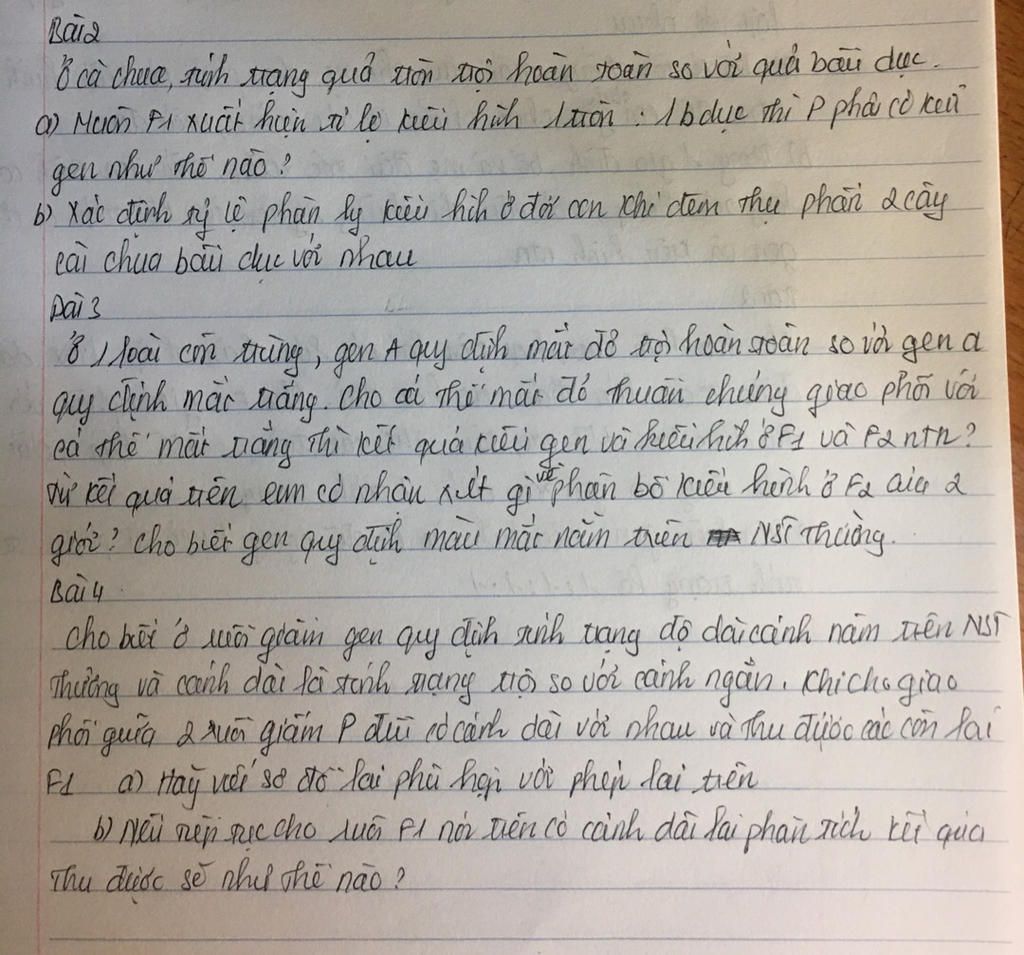 Bài 2
Ở cà chua, tính trạng quả tròn trội hoàn toàn so với quả bầu dục.
a) Muốn F1 xuất hiện tỉ lệ kiểu hình 1 tròn : 1 b dục thì P phải có kiểu
gen như thế nào?
b) Xác định tỷ lệ phân ly kiểu hình ở đời con khi đem thụ phấn 2 cây
cà chua bầu dục với nhau
Bài 3
Ở 1 loài côn trùng, gen A quy định mắt đỏ trội hoàn toàn so với gen a
quy định mắt trắng. Cho cá thể mắt đỏ thuần chủng giao phối với
cá thể mắt trắng thì kết quả kiểu gen và kiểu hình ở F1 và F2 ntn?
Từ kết quả trên em có nhận xét gì về phân bố kiểu hình ở F2 của 2
giới? Cho biết gen quy định màu mắt nằm trên NST thường.
Bài 4
Cho biết ở ruồi giấm gen quy định tính trạng độ dài cánh nằm trên NST
thường và cánh dài là tính trạng trội so với cánh ngắn. Khi cho giao
phối giữa 2 ruồi giấm P đều có cánh dài với nhau và thu được các con lai
F1 a) Hãy viết sơ đồ lai phù hợp với phép lai trên
b) Nếu tiếp tục cho ruồi F1 nói trên có cánh dài lai phân tích kết quả
thu được sẽ như thế nào?